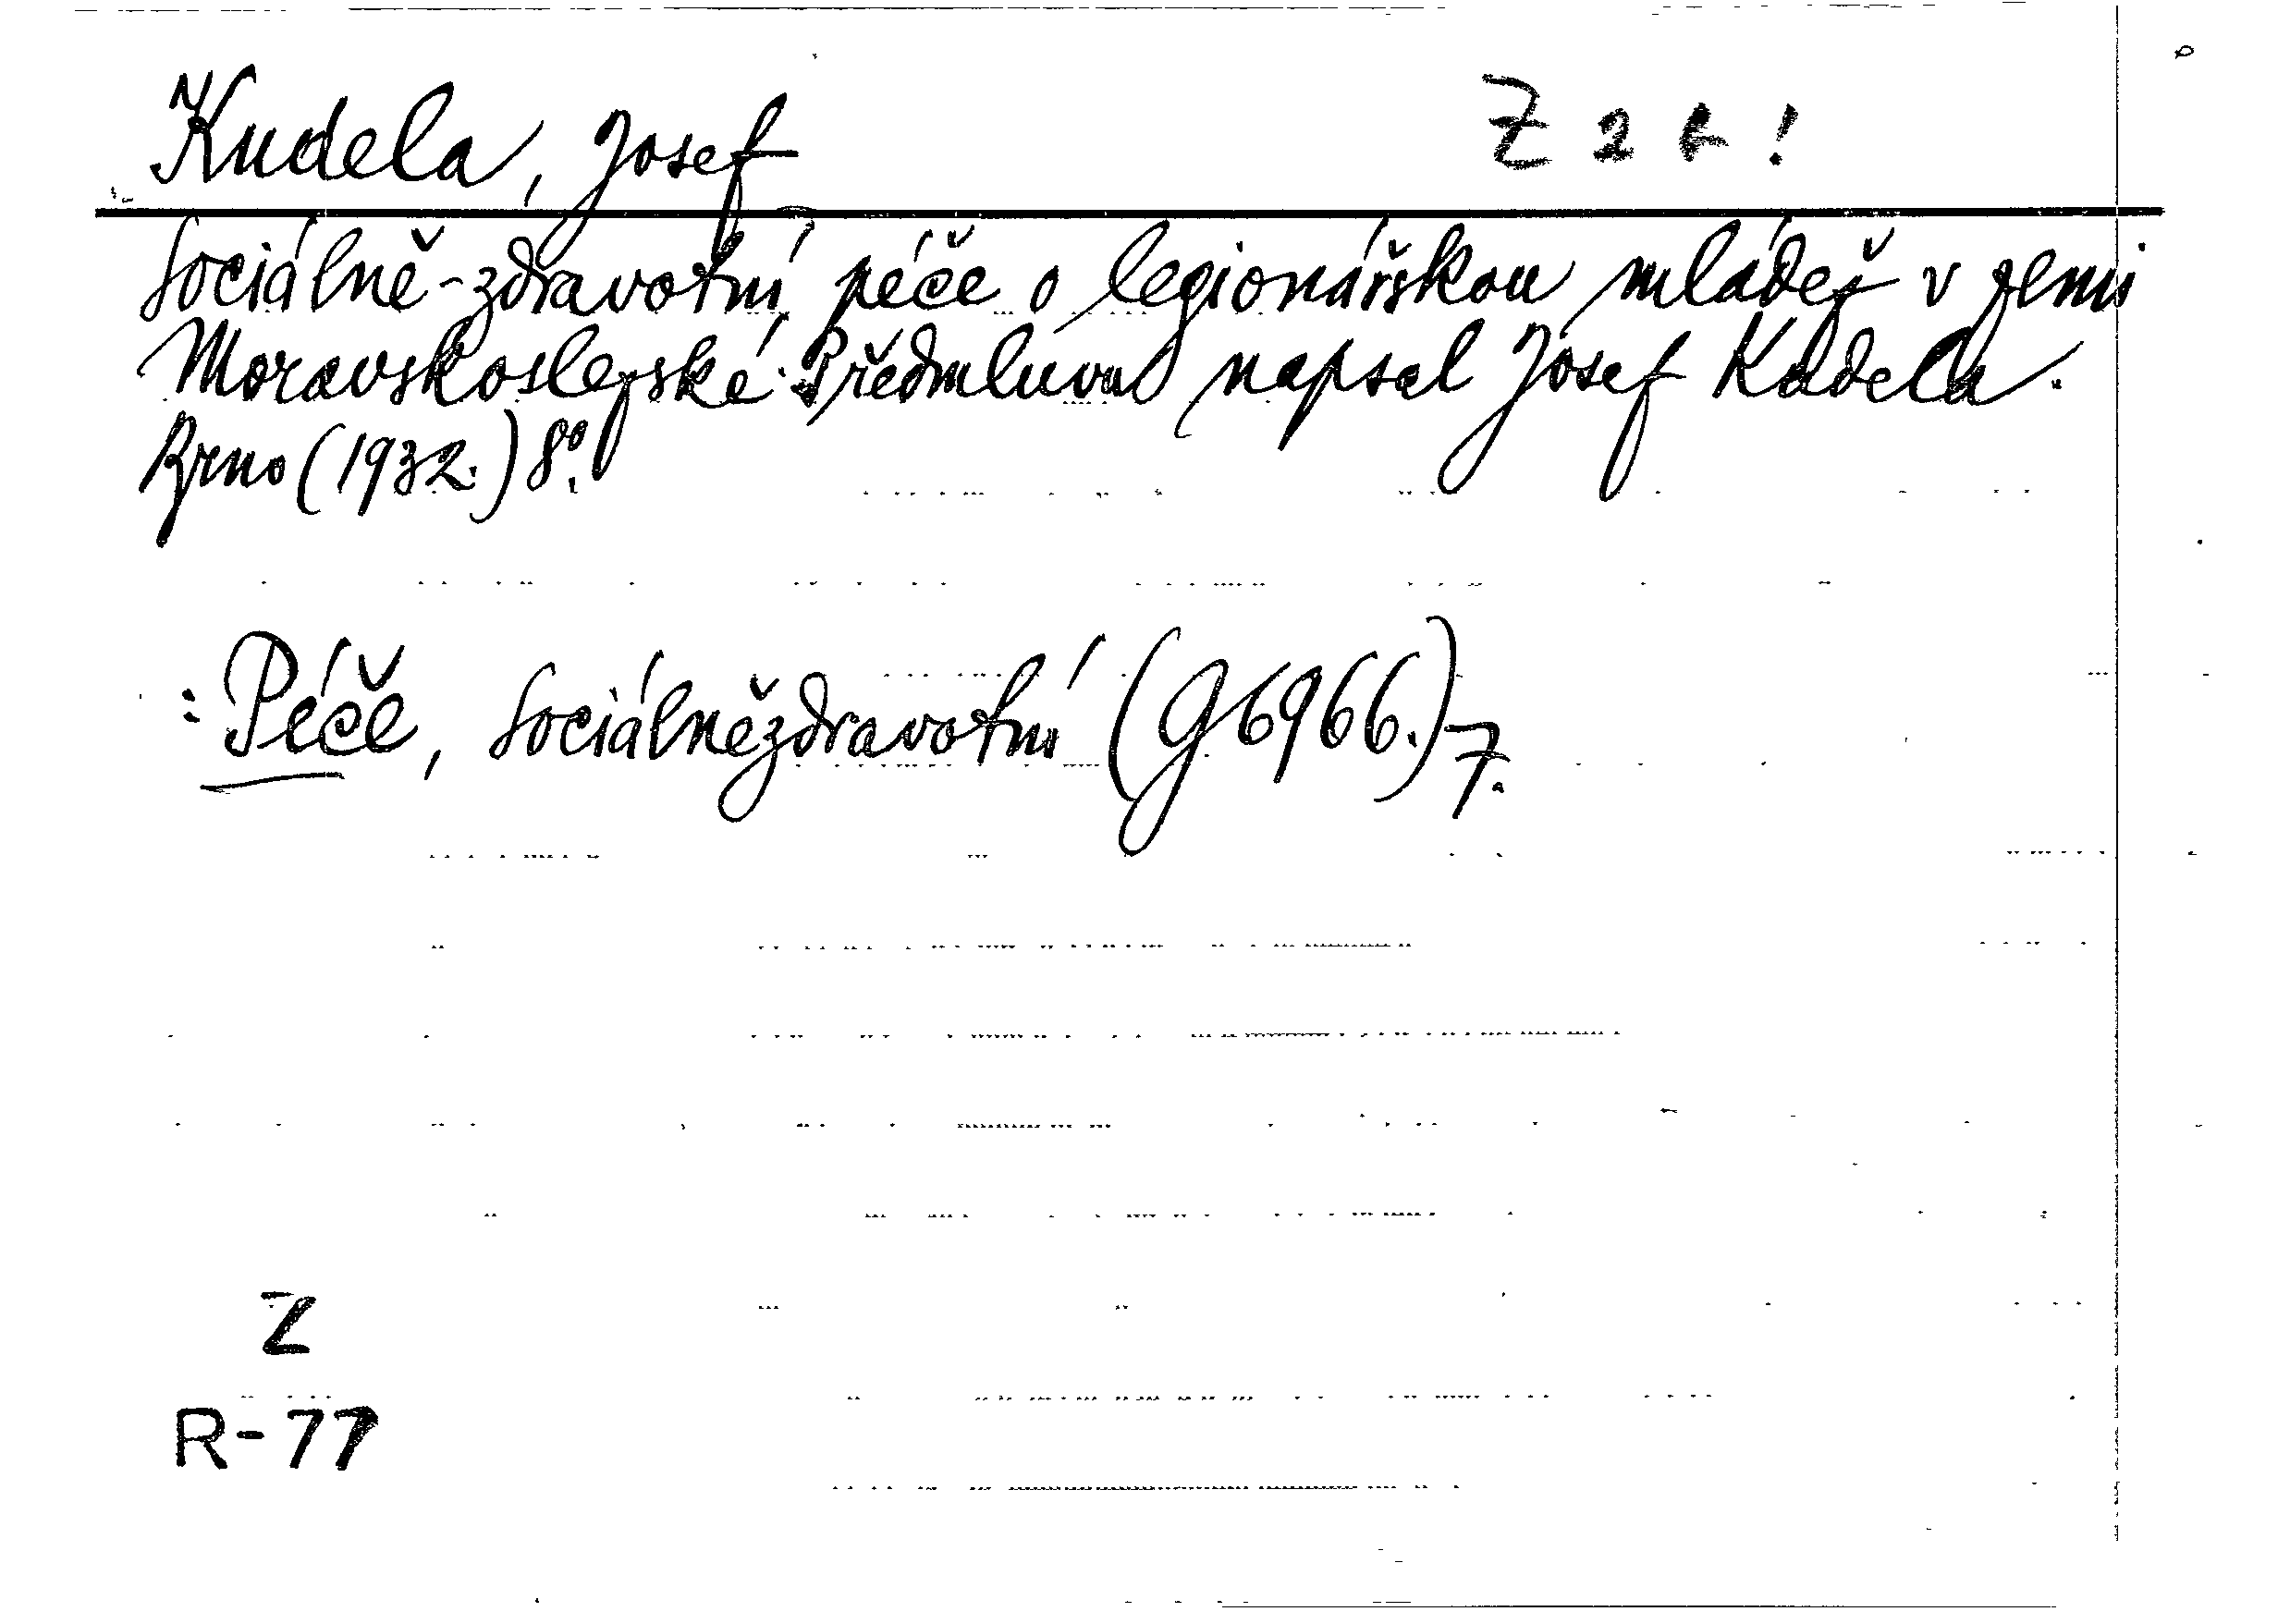 Kudela, Josef
Sociálně-zdravotní péče o legionářskou mládež v zemi
Moravskoslezské. Předmluvu napsal Josef Kudela.
Brno (1932.) 8°.
: Péče, sociálnězdravotní (G6966.) 7.
Z
R-77